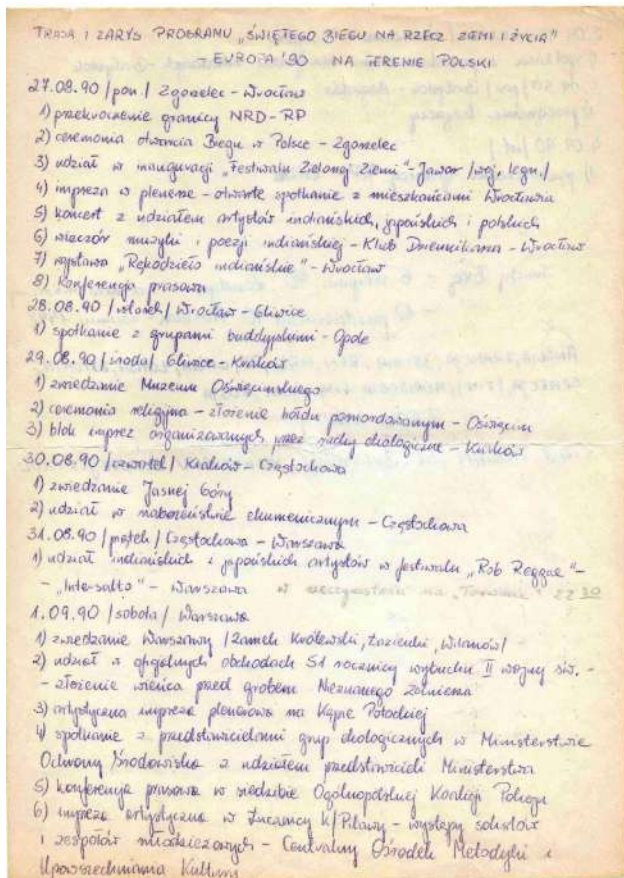 TRASA I ZARYS PROGRAMU „ŚWIĘTEGO BIEGU NA RZECZ ZIEMI I ŻYCIA"
– EUROPA '90 NA TERENIE POLSKI
27.08.90 /pon./ Zgorzelec – Wrocław
1) przekroczenie granicy NRD-RP
2) ceremonia otwarcia Biegu w Polsce – Zgorzelec
3) udział w inauguracji „Festiwalu Zielonej Ziemi" – Jawor /woj. legn./
4) impreza w plenerze – otwarte spotkanie z mieszkańcami Wrocławia
5) koncert z udziałem artystów indiańskich, japońskich i polskich
6) wieczór muzyki i poezji indiańskiej – Klub Dziennikarza – Wrocław
7) wystawa „Rękodzieło indiańskie" – Wrocław
8) konferencja prasowa
28.08.90 /wtorek/ Wrocław – Gliwice
1) spotkanie z grupami buddyjskimi – Opole
29.08.90 /środa/ Gliwice – Kraków
1) zwiedzanie Muzeum Oświęcimskiego
2) ceremonia religijna – złożenie hołdu pomordowanym – Oświęcim
3) blok imprez organizowanych przez ruchy ekologiczne – Kraków
30.08.90 /czwartek/ Kraków – Częstochowa
1) zwiedzanie Jasnej Góry
2) udział w nabożeństwie ekumenicznym – Częstochowa
31.08.90 /piątek/ Częstochowa – Warszawa
1) udział indiańskich i japońskich artystów w festiwalu „Rob Reggae" –
– „Intersalto" – Warszawa w na „Torwarze" 22 30
1.09.90 /sobota/ Warszawa
1) zwiedzanie Warszawy /Zamek Królewski, Łazienki, Wilanów/
2) udział w ogólnych obchodach 51 rocznicy wybuchu II wojny św. –
– złożenie wieńca przed grobem Nieznanego Żołnierza
3) artystyczna impreza plenerowa na Kępie Potockiej
4) spotkanie z przedstawicielami grup ekologicznych w Ministerstwie
Ochrony Środowiska z udziałem przedstawicieli Ministerstwa
5) konferencja prasowa w siedzibie Ogólnopolskiej Koalicji Pokoju
6) impreza artystyczna w Żucznicy k/Pilawy – występy solistów
i zespołów młodzieżowych – Centralny Ośrodek Metodyki i
Upowszechniania Kultury